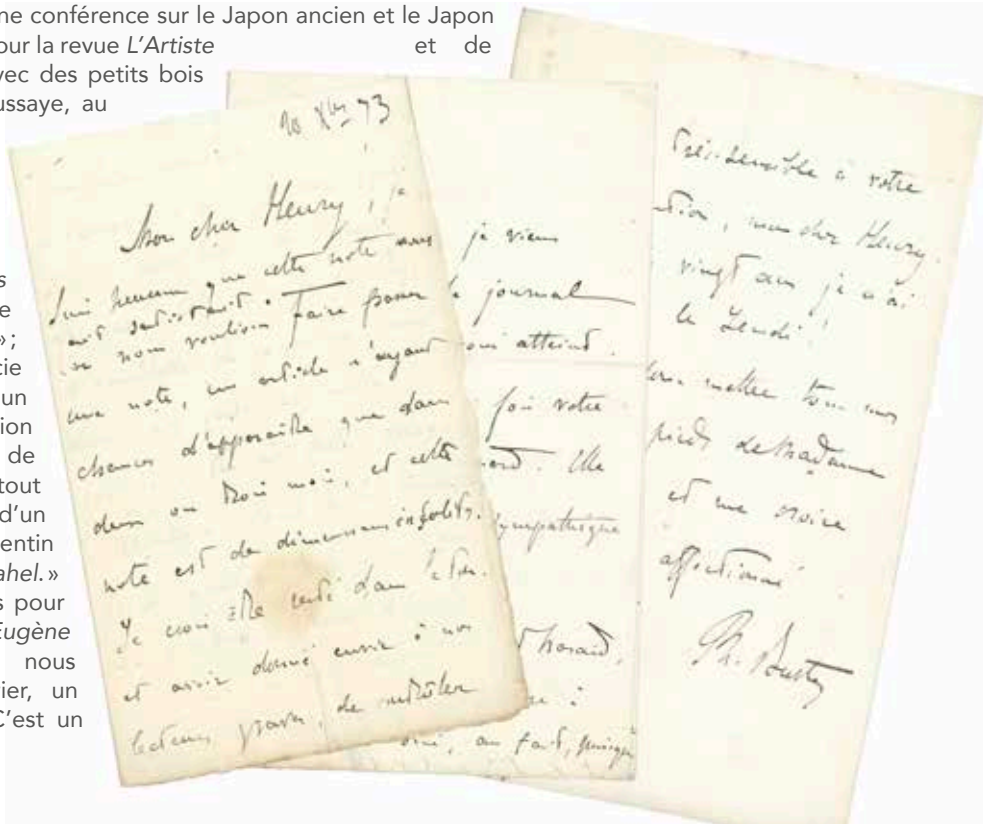 ne conférence sur le Japon ancien et le Japon
our la revue L'Artiste et de
vec des petits bois
ussaye, au
s
e
» ;
cie
un
ion
de
tout
d'un
entin
ahel. »
s pour
Eugène
nous
rier, un
C'est un
10 Xbre 93
Mon cher Henry, je
suis heureux que cette note vous
ait satisfait.
nous voulions faire passer
une note, un article n'ayant
chance d'apparaître que dans
deux ou trois mois, et cette
note est de dimensions insolites.
Je crois être resté dans le ton.
et avoir donné envie à nos
lecteurs graves, de
je viens
le journal
atteint.
fois votre
Elle
sympathique
hasard,
au fait, puisque
Très sensible à votre
mon cher Henry.
vingt ans je n'ai
le Zendi !
mettre tous mes
pieds de Madame
et me croire
affectionné
Ph. Burty